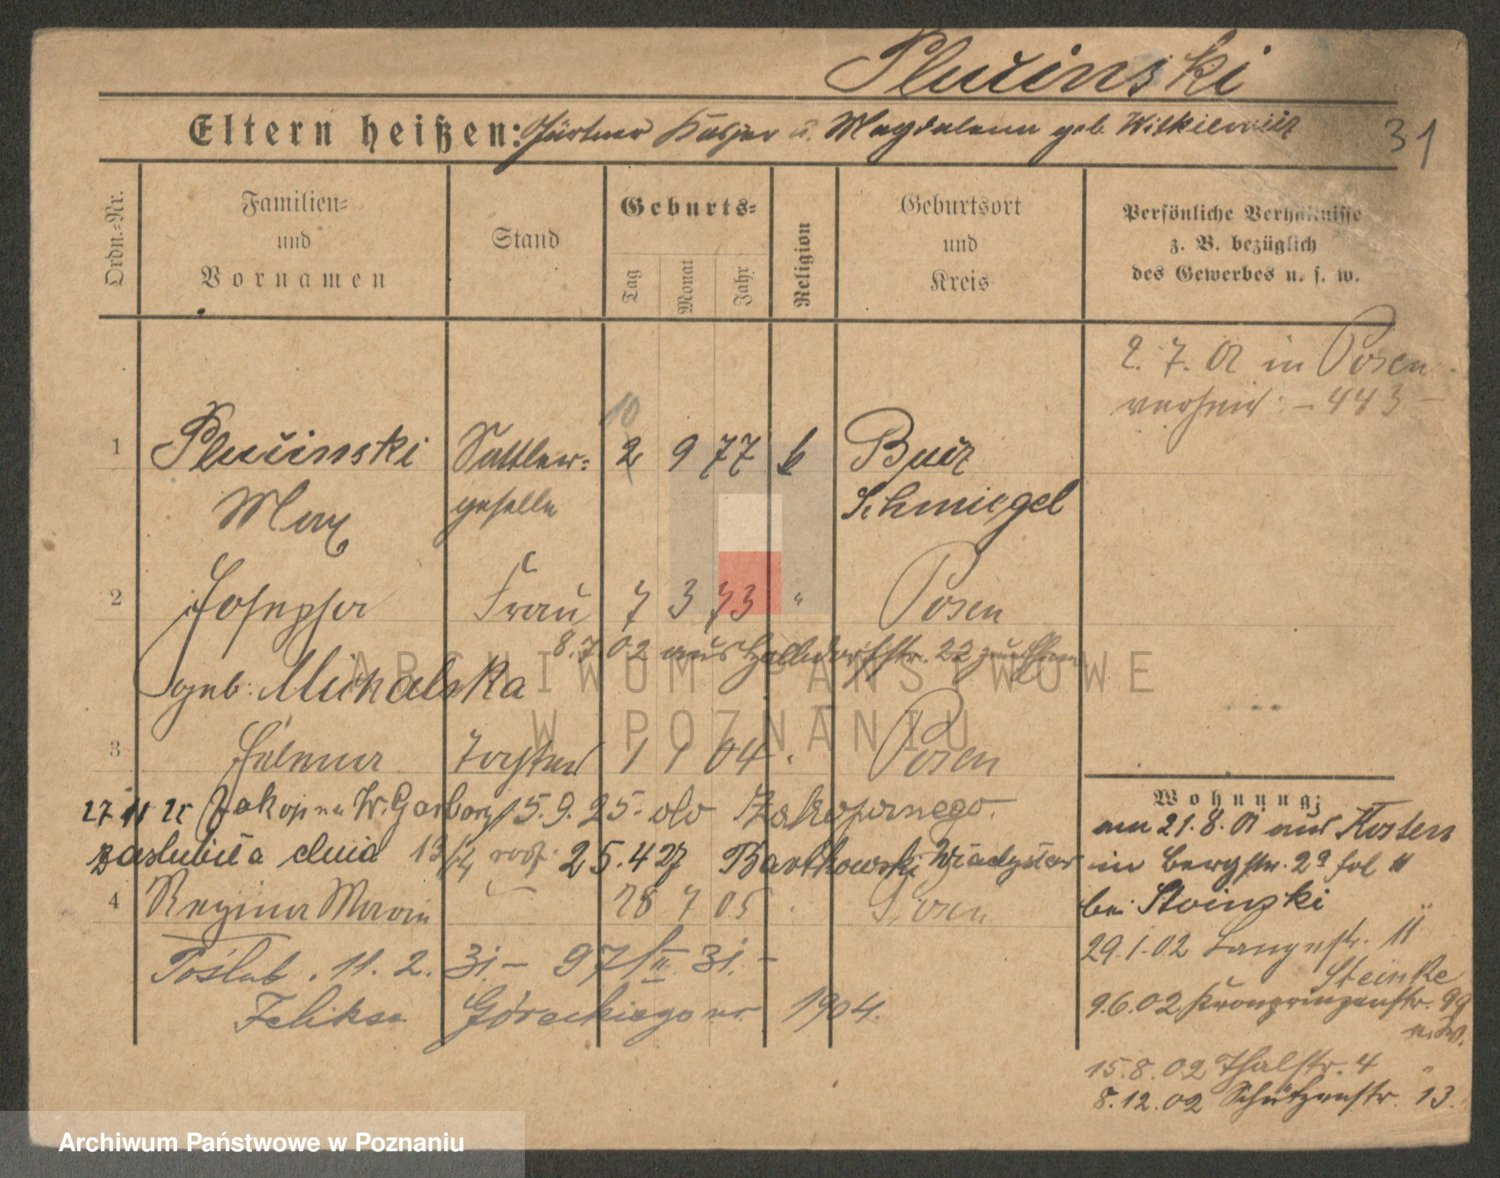 Plucinski
Eltern heißen: Gärtner Kasper u. Magdalena geb. Witkiewicz
31
Ordn.-Nr.
Familien-
und
Vornamen
Stand
Geburts-
Tag
Monat
Jahr
Religion
Geburtsort
und
Kreis
Persönliche Verhältnisse
z. B. bezüglich
des Gewerbes u. s. w.
2. 7. 01 in Posen
verheir. - 443 -
10
1 Plucinski Sattler- 2 9 77 k Bucz
Max geselle Schmiegel
2 Josepha Frau 7 3 73 " Posen
8.7.02 aus Halldorfstr. 22
geb. Michalska
3 Helena Tochter 1 1 04 Posen
27 11 25 W. Garbary 15.9.25 do Zakopanego.
zaślubiła dnia 25.4 27 Bartkowski Władysław
4 Regina Maria 28 7 05 Posen
Poślub. 11. 2. 31 - 97/II 31. -
Feliksa Góreckiego ur. 1904.
Wohnung:
am 21.8.01 aus Kosten
in Bergstr. 29 11
bei Stoinski
29.1.02 Langestr. 11
Steinke
9.6.02 Kronprinzenstr. 99
15.8.02 Thalstr. 4 "
8.12.02 Schützenstr. 13.
ARCHIWUM PAŃSTWOWE
W POZNANIU
Archiwum Państwowe w Poznaniu